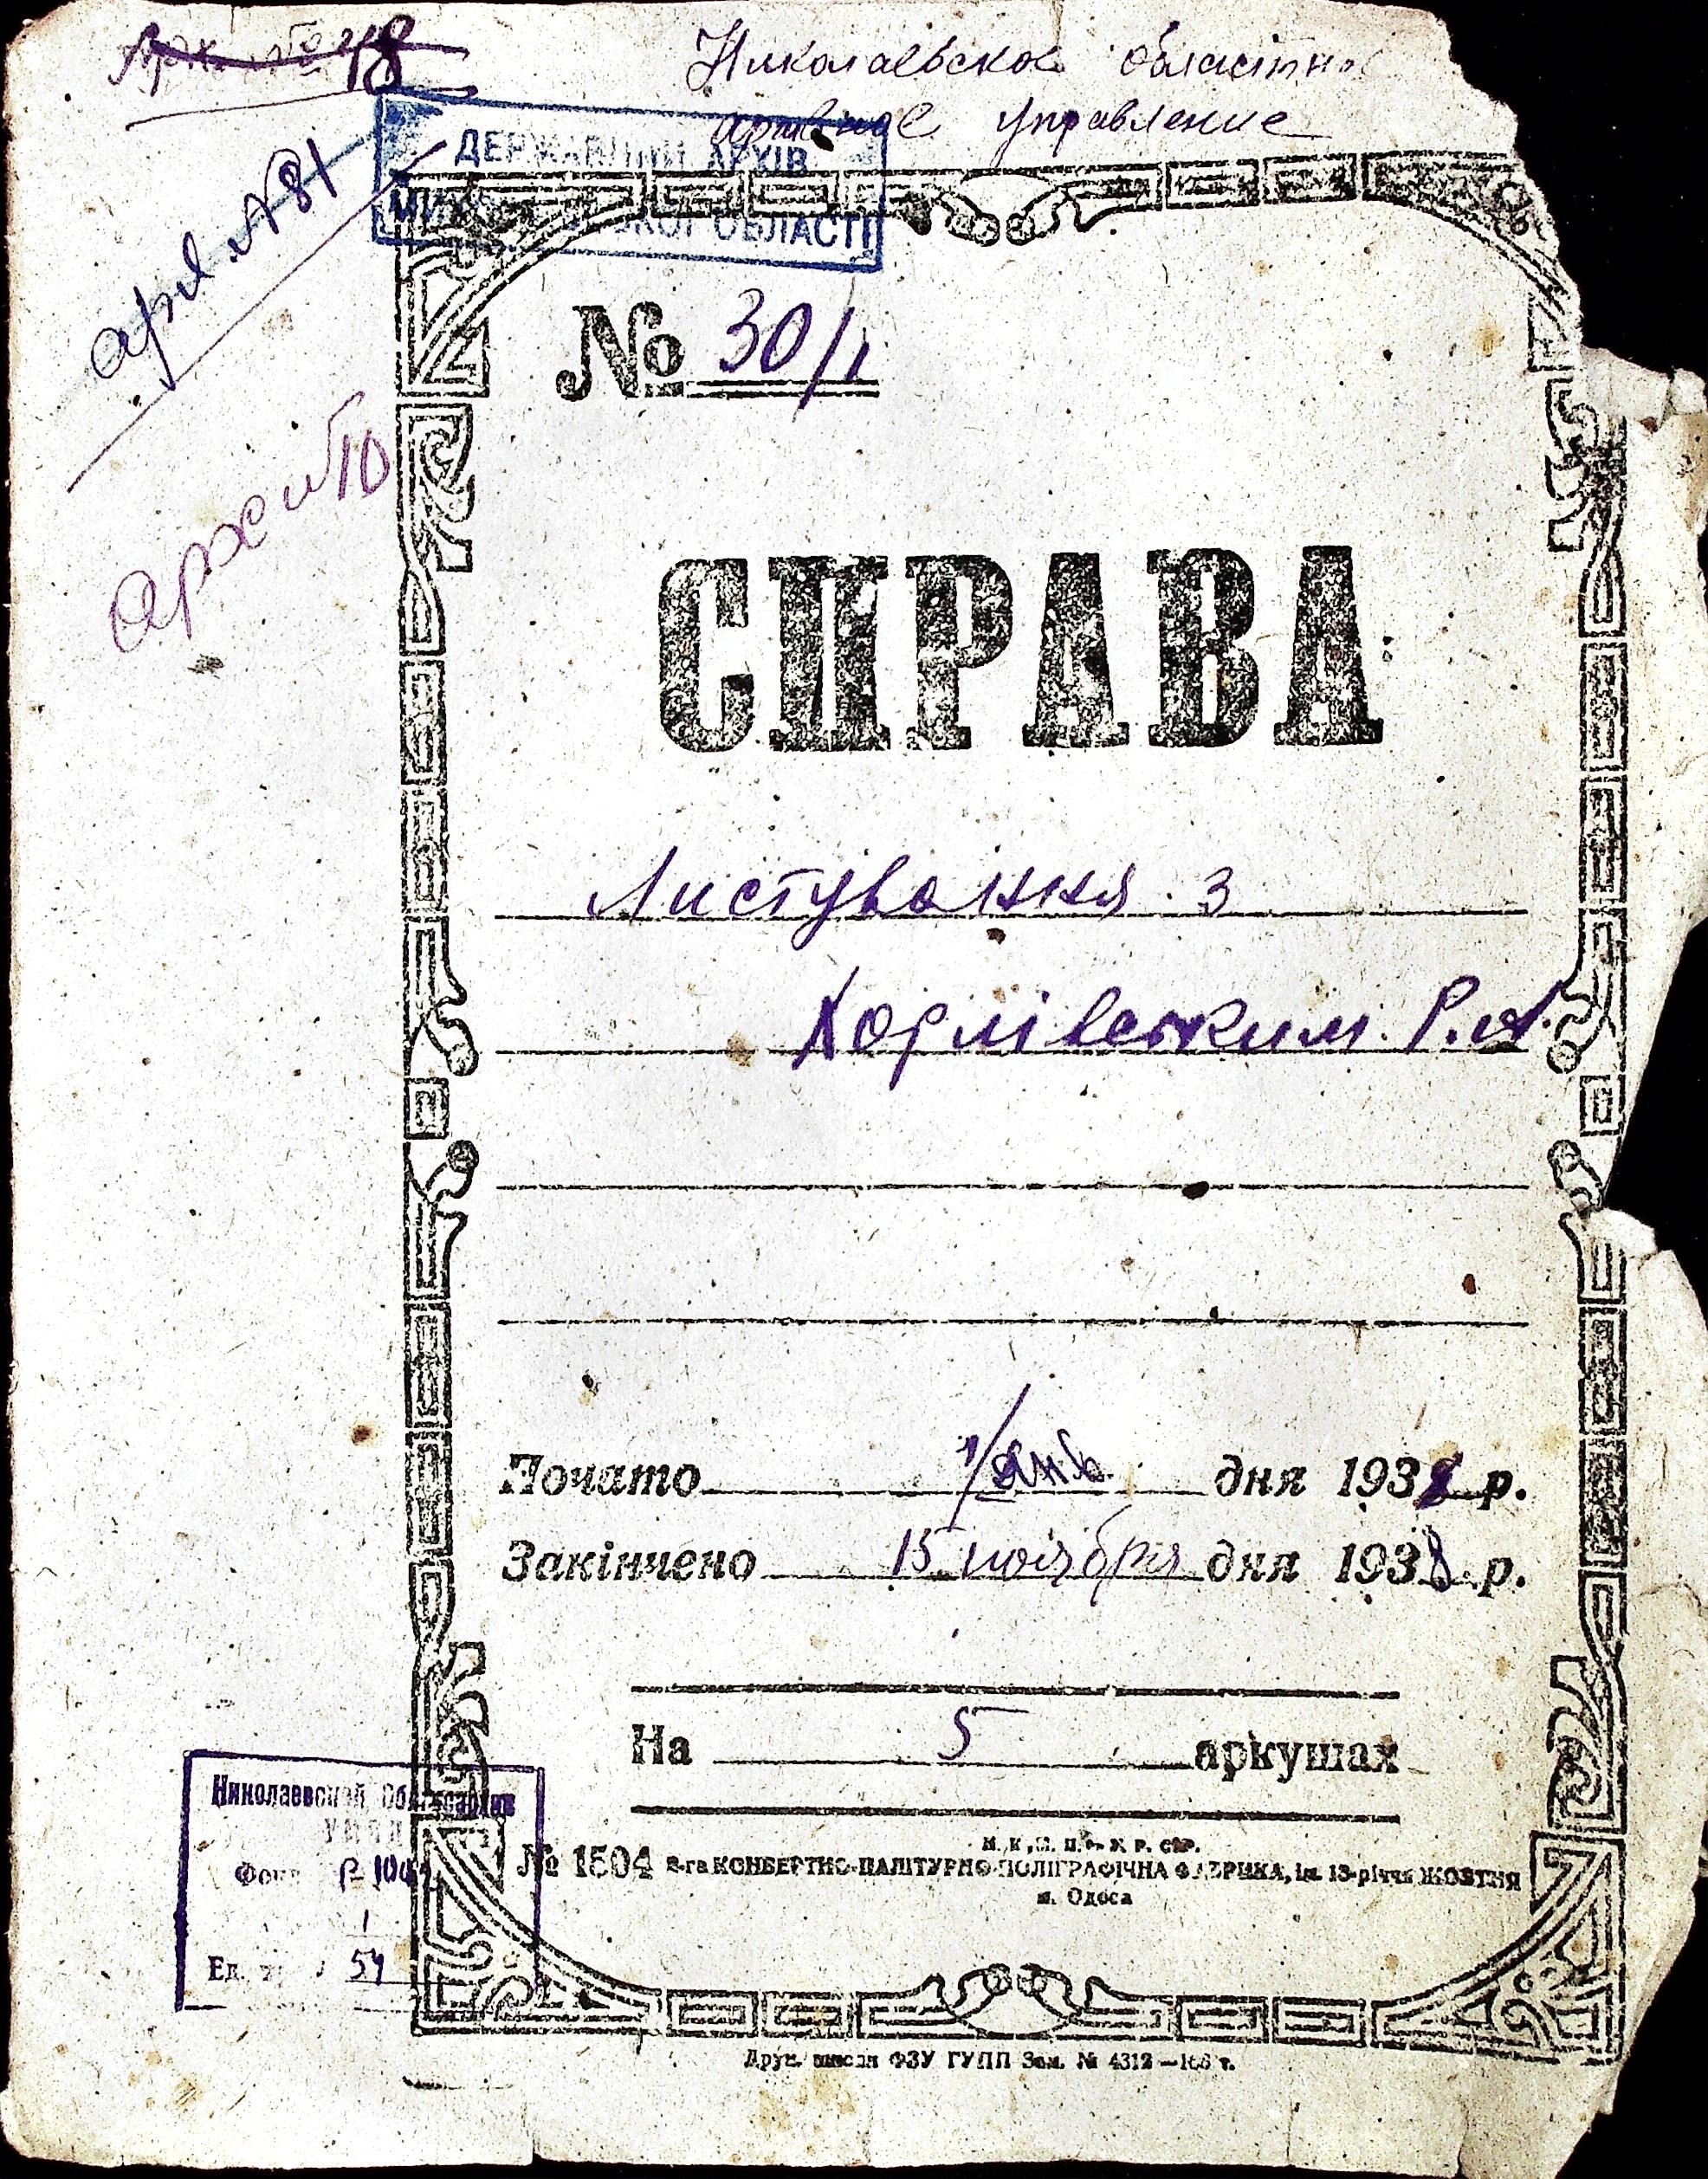 48
Николаевское областное
архивное управление
ДЕРЖАВНИЙ АРХІВ
МИКОЛАЇВСЬКОЇ ОБЛАСТІ
арх. №81
архив 10
№ 30/1
СПРАВА
Листування з
Хорлівським Р.А.
Почато 1/янв. дня 1938 р.
Закінчено 15 ноября дня 1938 р.
На 5 аркушах
Николаевский Облгосархив
Фонд Р-100
1
Ед. 54
№ 1504 2-га КОНВЕРТНО-ПАЛІТУРНО-ПОЛІГРАФІЧНА ФАБРИКА, ім. 13-річчя ЖОВТНЯ
м. Одеса
Друк. школи ФЗУ ГУПП Зам. № 4312